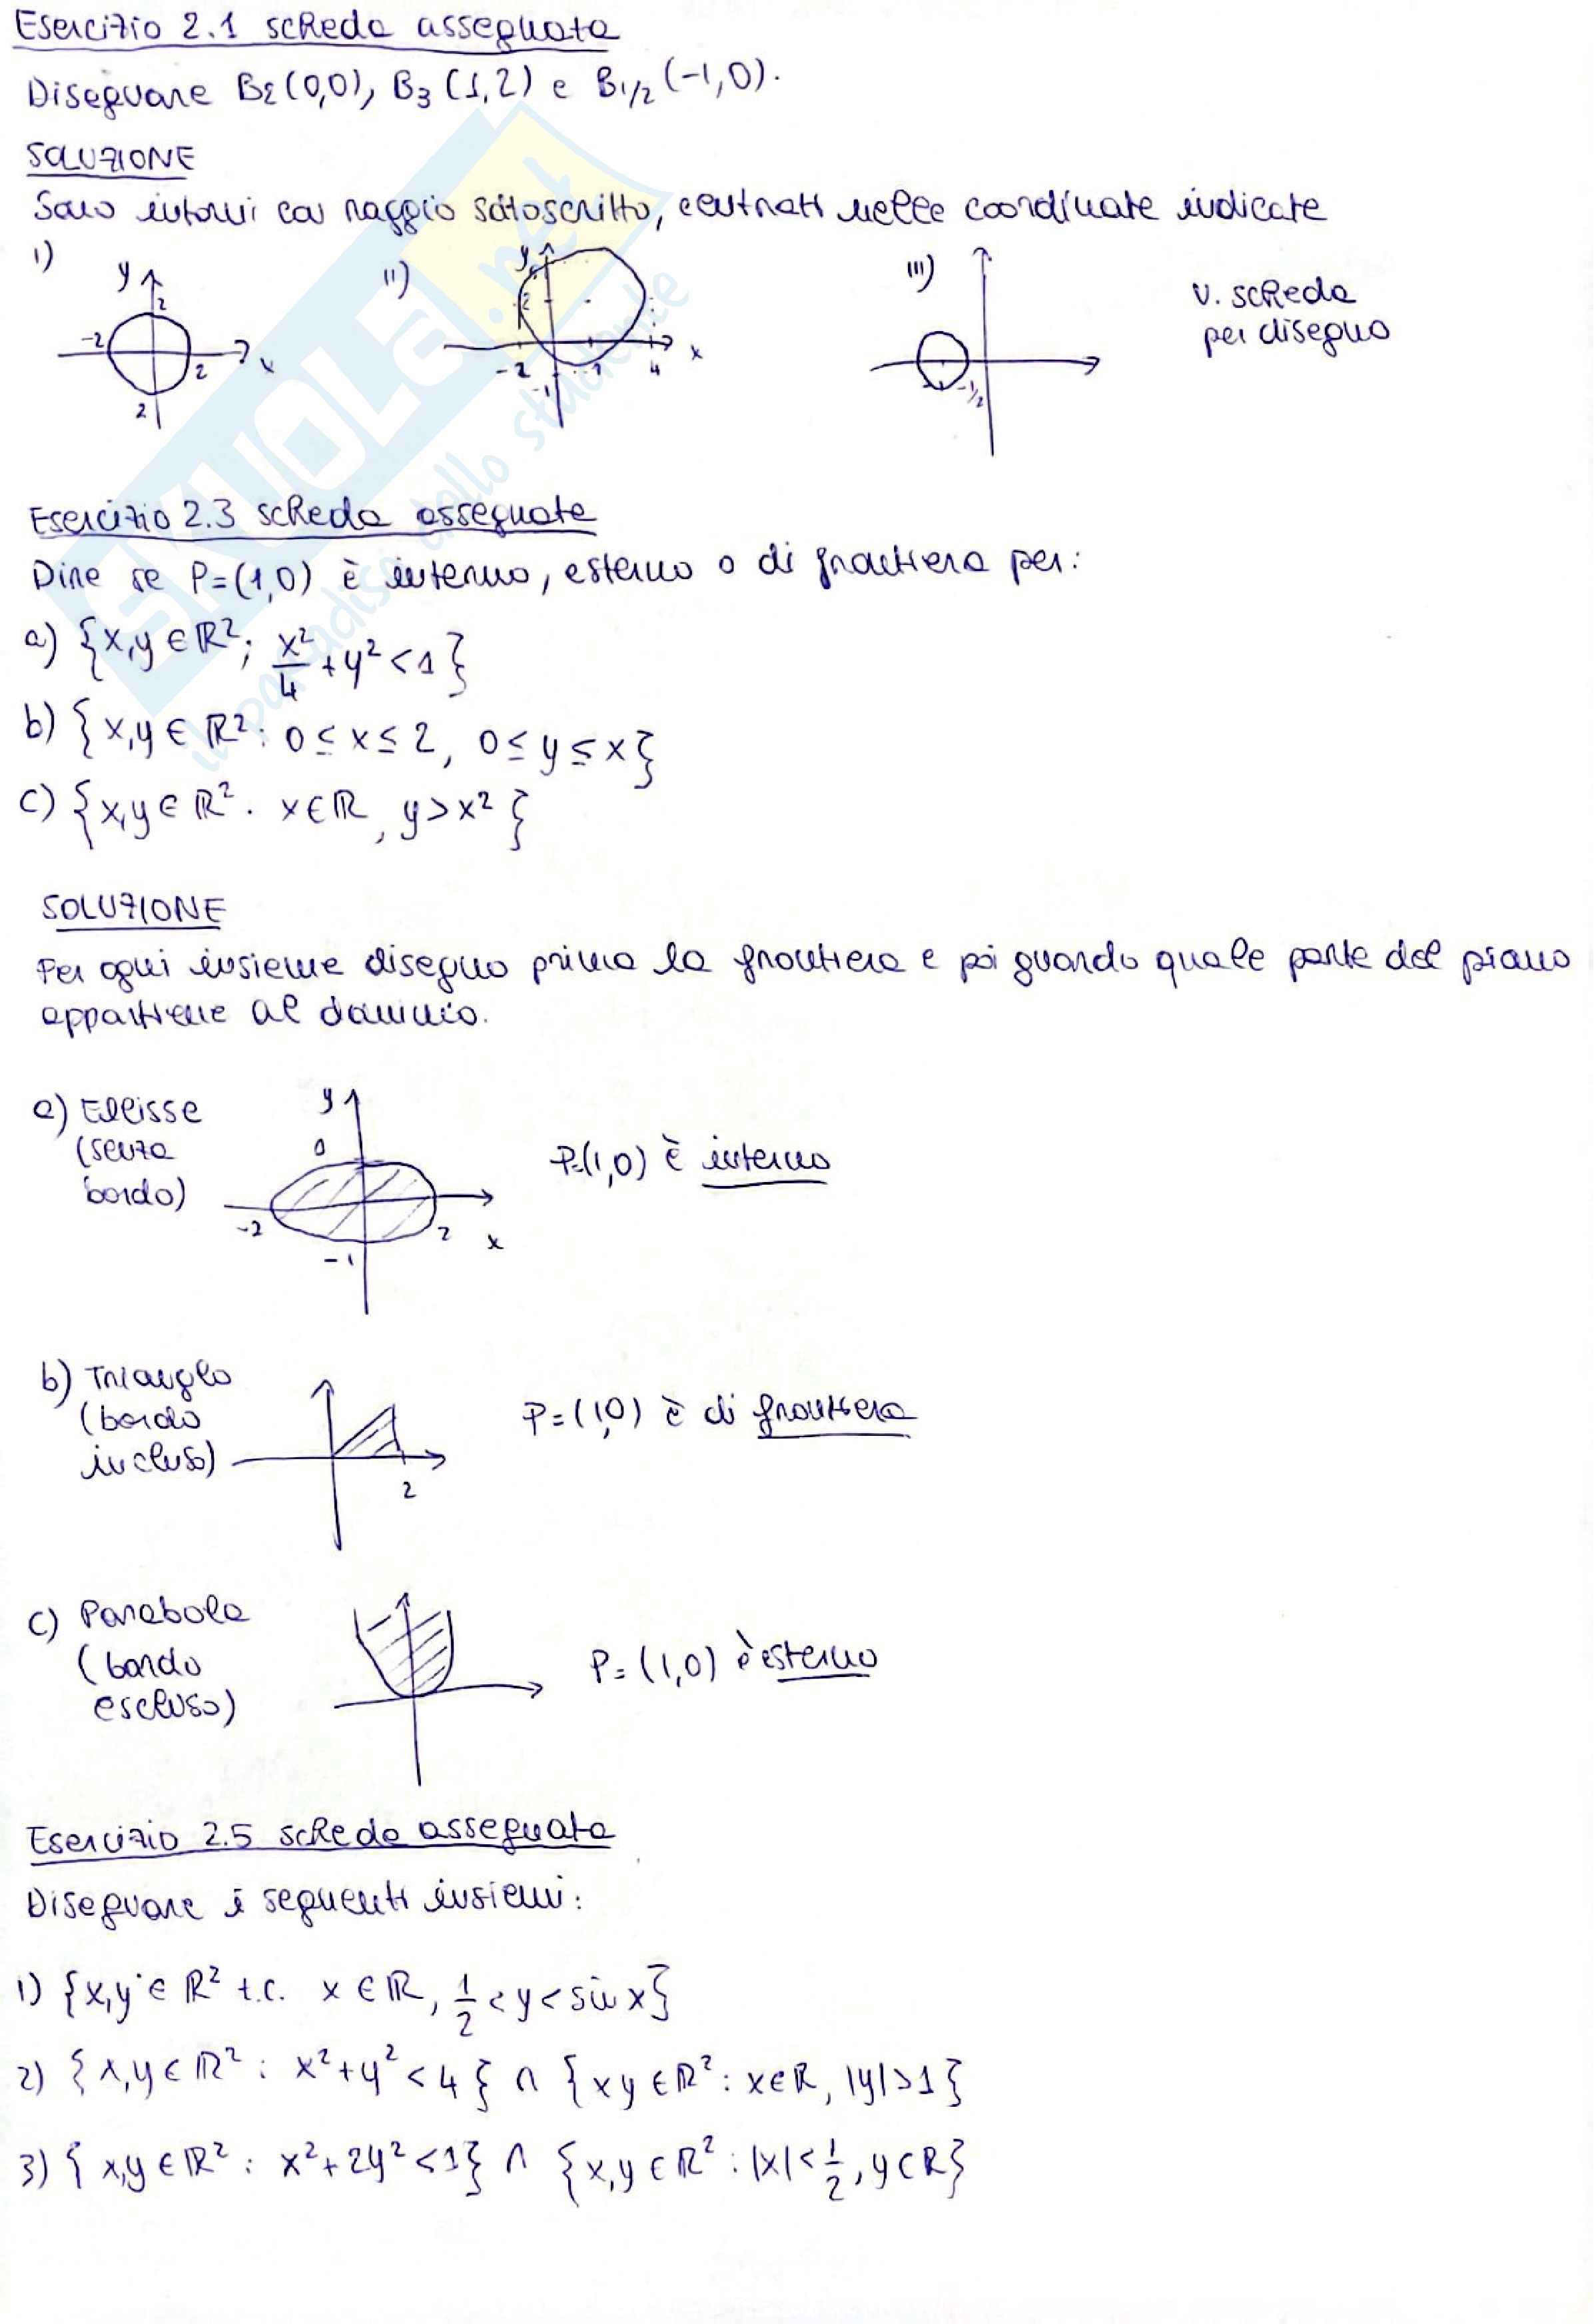 Esercizio 2.1 scheda assegnata
Disegnare B₂(0,0), B₃(1,2) e B₁/₂(-1,0).
SOLUZIONE
Sono intorni con raggio sottoscritto, centrati nelle coordinate indicate
i) y 2 -2 2 x 2
ii) y 2 -2 -1 1 4 x
iii) -1/2
v. scheda
per disegno
Esercizio 2.3 scheda assegnata
Dire se P=(1,0) è interno, esterno o di frontiera per:
a) {x,y ∈ ℝ²; x²/4 + y² < 1}
b) {x,y ∈ ℝ²: 0 ≤ x ≤ 2, 0 ≤ y ≤ x}
c) {x,y ∈ ℝ². x ∈ ℝ, y > x²}
SOLUZIONE
Per ogni insieme disegno prima la frontiera e poi guardo quale parte del piano
appartiene al dominio.
a) Ellisse
(senza
bordo)
y 0 -2 2 x -1
P=(1,0) è interno
b) Triangolo
(bordo
incluso)
2
P=(1,0) è di frontiera
c) Parabola
(bordo
escluso)
P=(1,0) è esterno
Esercizio 2.5 scheda assegnata
Disegnare i seguenti insiemi:
1) {x,y ∈ ℝ² t.c. x ∈ ℝ, 1/2 < y < sin x}
2) {x,y ∈ ℝ²: x²+y² < 4} ∩ {xy ∈ ℝ²: x ∈ ℝ, |y| > 1}
3) {x,y ∈ ℝ²: x²+2y² < 1} ∩ {x,y ∈ ℝ²: |x| < 1/2, y ∈ ℝ}
SKUOLA.net
il paradiso dello studente